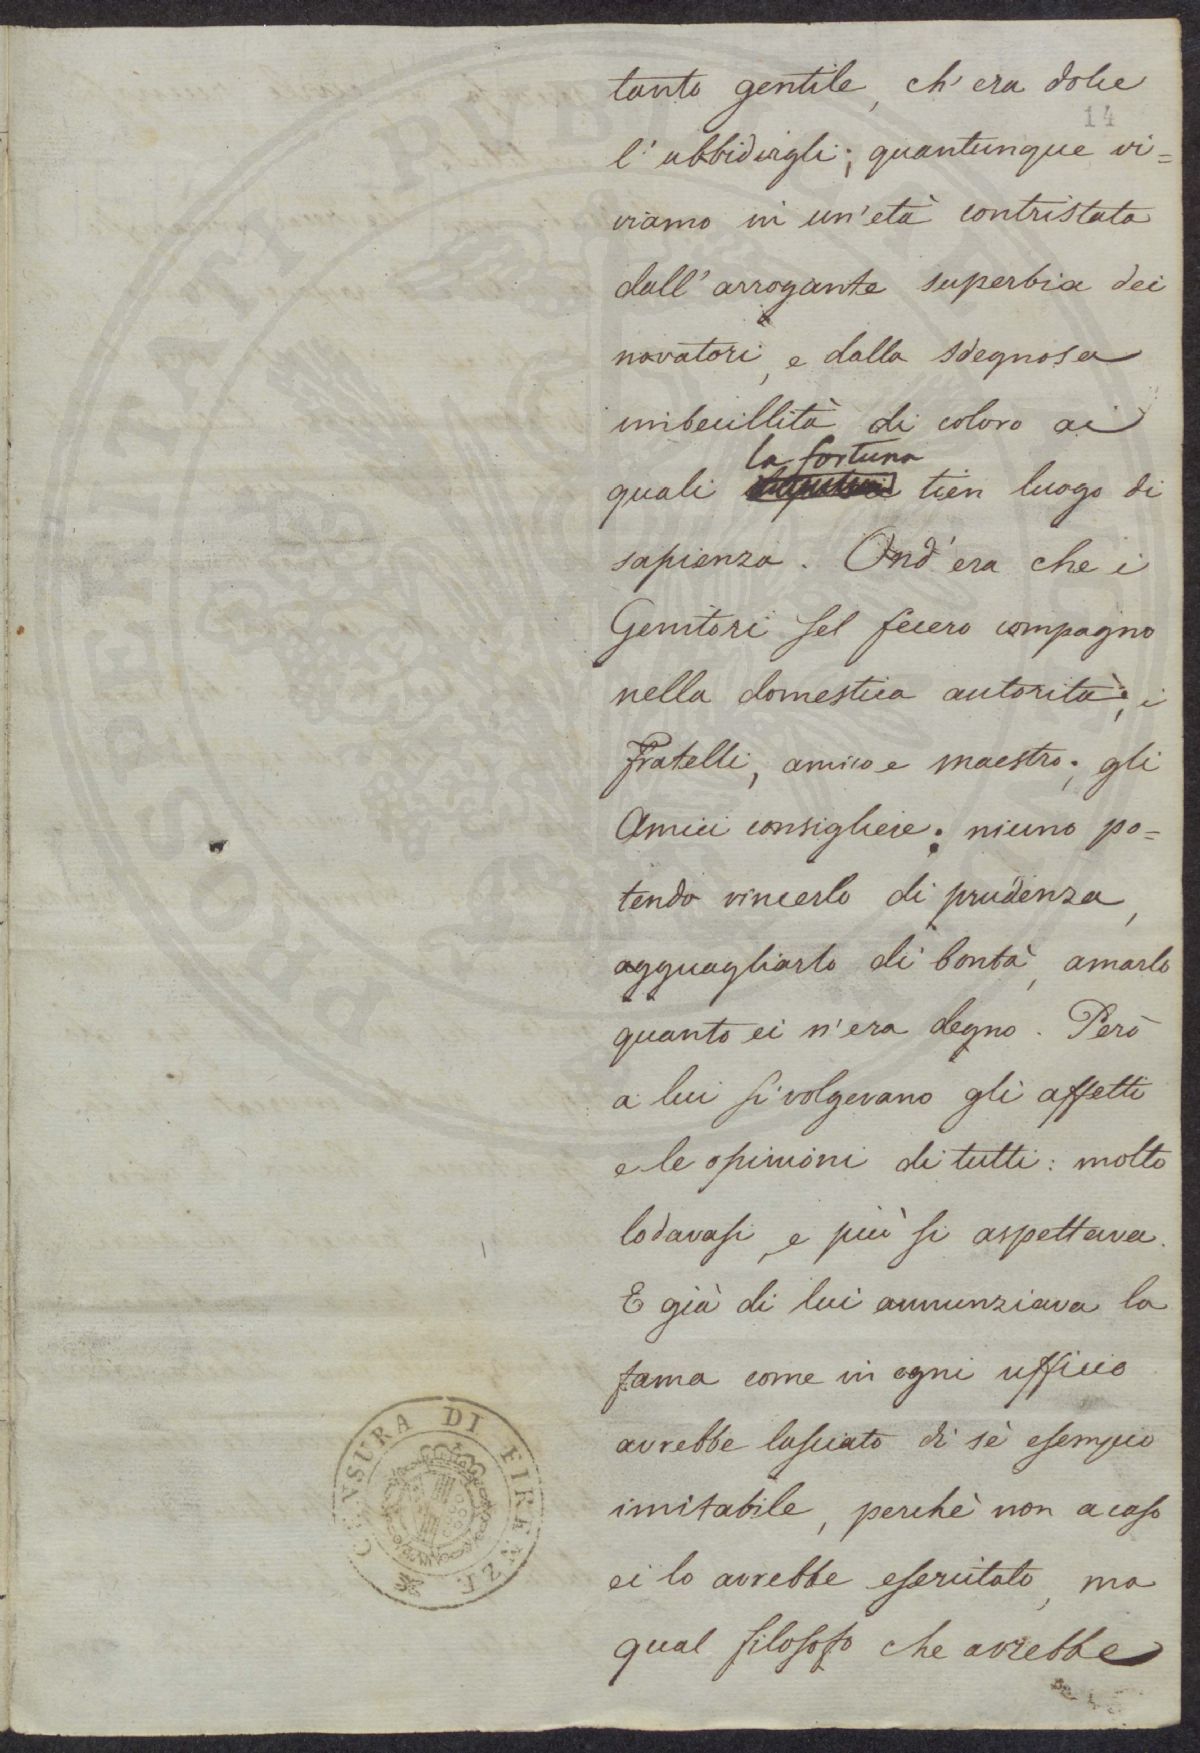 tanto gentile, ch'era dolce
14
l'ubbidirgli; quantunque vi=
viamo in un'età contristata
dall'arrogante superbia dei
novatori, e dalla sdegnosa
imbecillità di coloro ai
la fortuna
quali tien luogo di
sapienza. Ond'era che i
Genitori sel fecero compagno
nella domestica autorità; i
Fratelli, amico e maestro; gli
Amici consigliere; niuno po=
tendo vincerlo di prudenza,
agguagliarlo di bontà, amarlo
quanto ei n'era degno. Però
a lui si volgevano gli affetti
e le opinioni di tutti: molto
lodavasi, e più si aspettava.
E già di lui annunziava la
fama come in ogni ufficio
avrebbe lasciato di sè esempio
imitabile, perchè non a caso
ei lo avrebbe esercitato, ma
qual filosofo che avrebbe
CENSURA DI FIRENZE